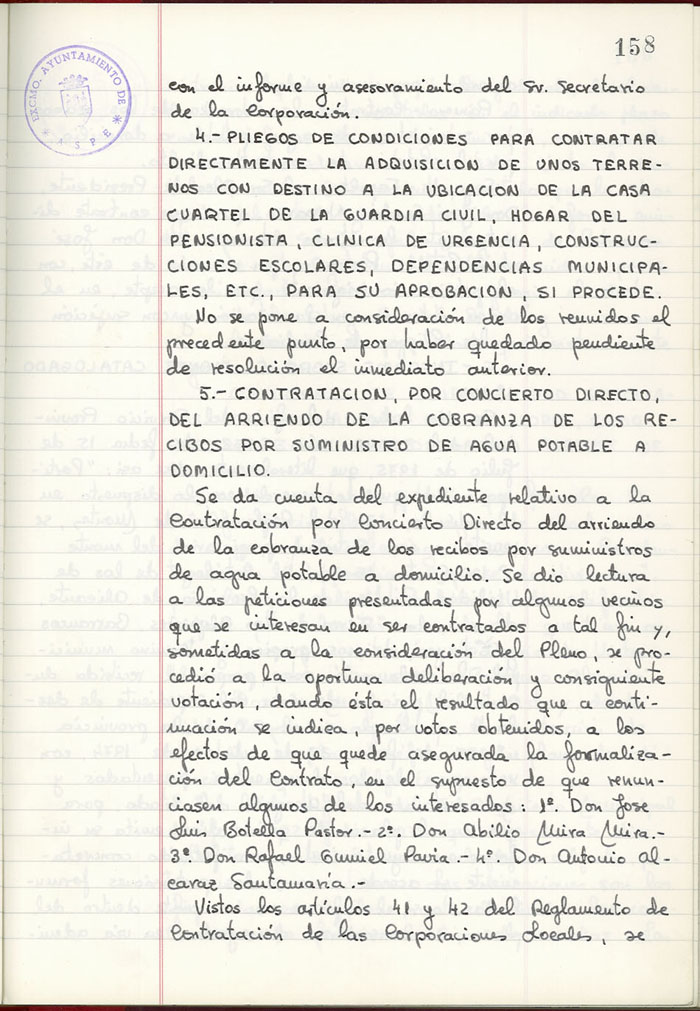 158
EXCMO. AYUNTAMIENTO DE
ASPE
con el informe y asesoramiento del Sr. Secretario
de la Corporación.
4.- PLIEGOS DE CONDICIONES PARA CONTRATAR
DIRECTAMENTE LA ADQUISICION DE UNOS TERRE-
NOS CON DESTINO A LA UBICACION DE LA CASA
CUARTEL DE LA GUARDIA CIVIL, HOGAR DEL
PENSIONISTA, CLINICA DE URGENCIA, CONSTRUC-
CIONES ESCOLARES, DEPENDENCIAS MUNICIPA-
LES, ETC., PARA SU APROBACION, SI PROCEDE.
No se pone a consideración de los reunidos el
precedente punto, por haber quedado pendiente
de resolución el inmediato anterior.
5.- CONTRATACION, POR CONCIERTO DIRECTO,
DEL ARRIENDO DE LA COBRANZA DE LOS RE-
CIBOS POR SUMINISTRO DE AGUA POTABLE A
DOMICILIO.
Se da cuenta del expediente relativo a la
Contratación por Concierto Directo del arriendo
de la cobranza de los recibos por suministros
de agua potable a domicilio. Se dio lectura
a las peticiones presentadas por algunos vecinos
que se interesan en ser contratados a tal fin y,
sometidas a la consideración del Pleno, se pro-
cedió a la oportuna deliberación y consiguiente
votación, dando ésta el resultado que a conti-
nuación se indica, por votos obtenidos, a los
efectos de que quede asegurada la formaliza-
ción del Contrato, en el supuesto de que renun-
ciasen algunos de los interesados: 1º. Don Jose
Luis Botella Pastor.- 2º. Don Abilio Mira Mira.-
3º. Don Rafael Gumiel Pavia.- 4º. Don Antonio Al-
caraz Santamaría.-
Vistos los artículos 41 y 42 del Reglamento de
Contratación de las Corporaciones Locales, se